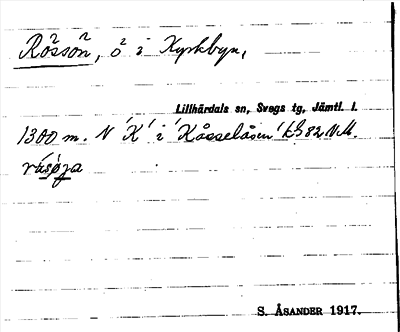 Rösson, ö i Kyrkbyn,
Lillhärdals sn, Svegs tg, Jämtl. l.
1300 m. N 'K' i 'Kåsselåsen' kb 82 N.M.
råsøja
S. ÅSANDER 1917.